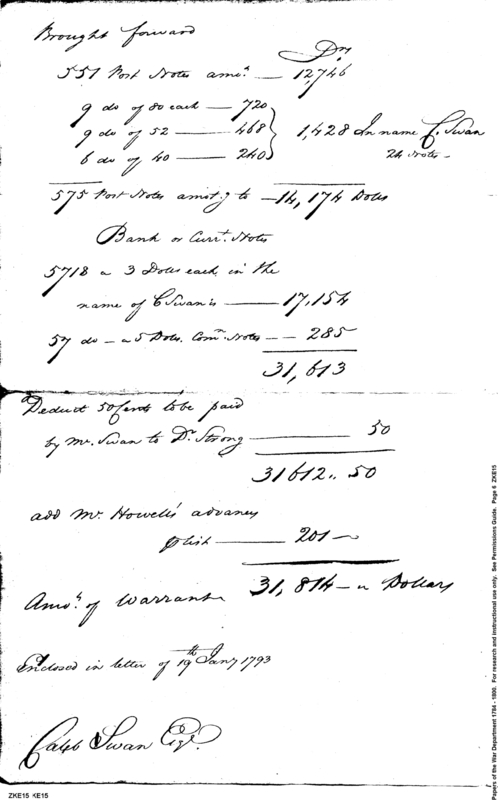 Brought forward
Drs
551 Post Notes amo.t — 12,746
9 do of 80 each — 720
9 do of 52 — 468
6 do of 40 — 240
1,428 In name C. Swan
24 Notes —
575 Post Notes amot.g to — 14,174 Dolrs
Bank or Curr.t Notes
5718 a 3 Dolrs each in the
name of C Swan is — 17,154
57 do — a 5 Dolrs. Com.n Notes — 285
31,613
Deduct 50 Cents to be paid
by Mr. Swan to Dr. Strong — 50
31612.. 50
add Mr. Howell's advance
— 201 —
Amo.t of Warrants 31,814 — Dollars
Enclosed in letter of 19th Jany 1793
Caleb Swan Esq.r
ZKE15 KE15
Papers of the War Department 1784 - 1800. For research and instructional use only. See Permissions Guide. Page 6 ZKE15